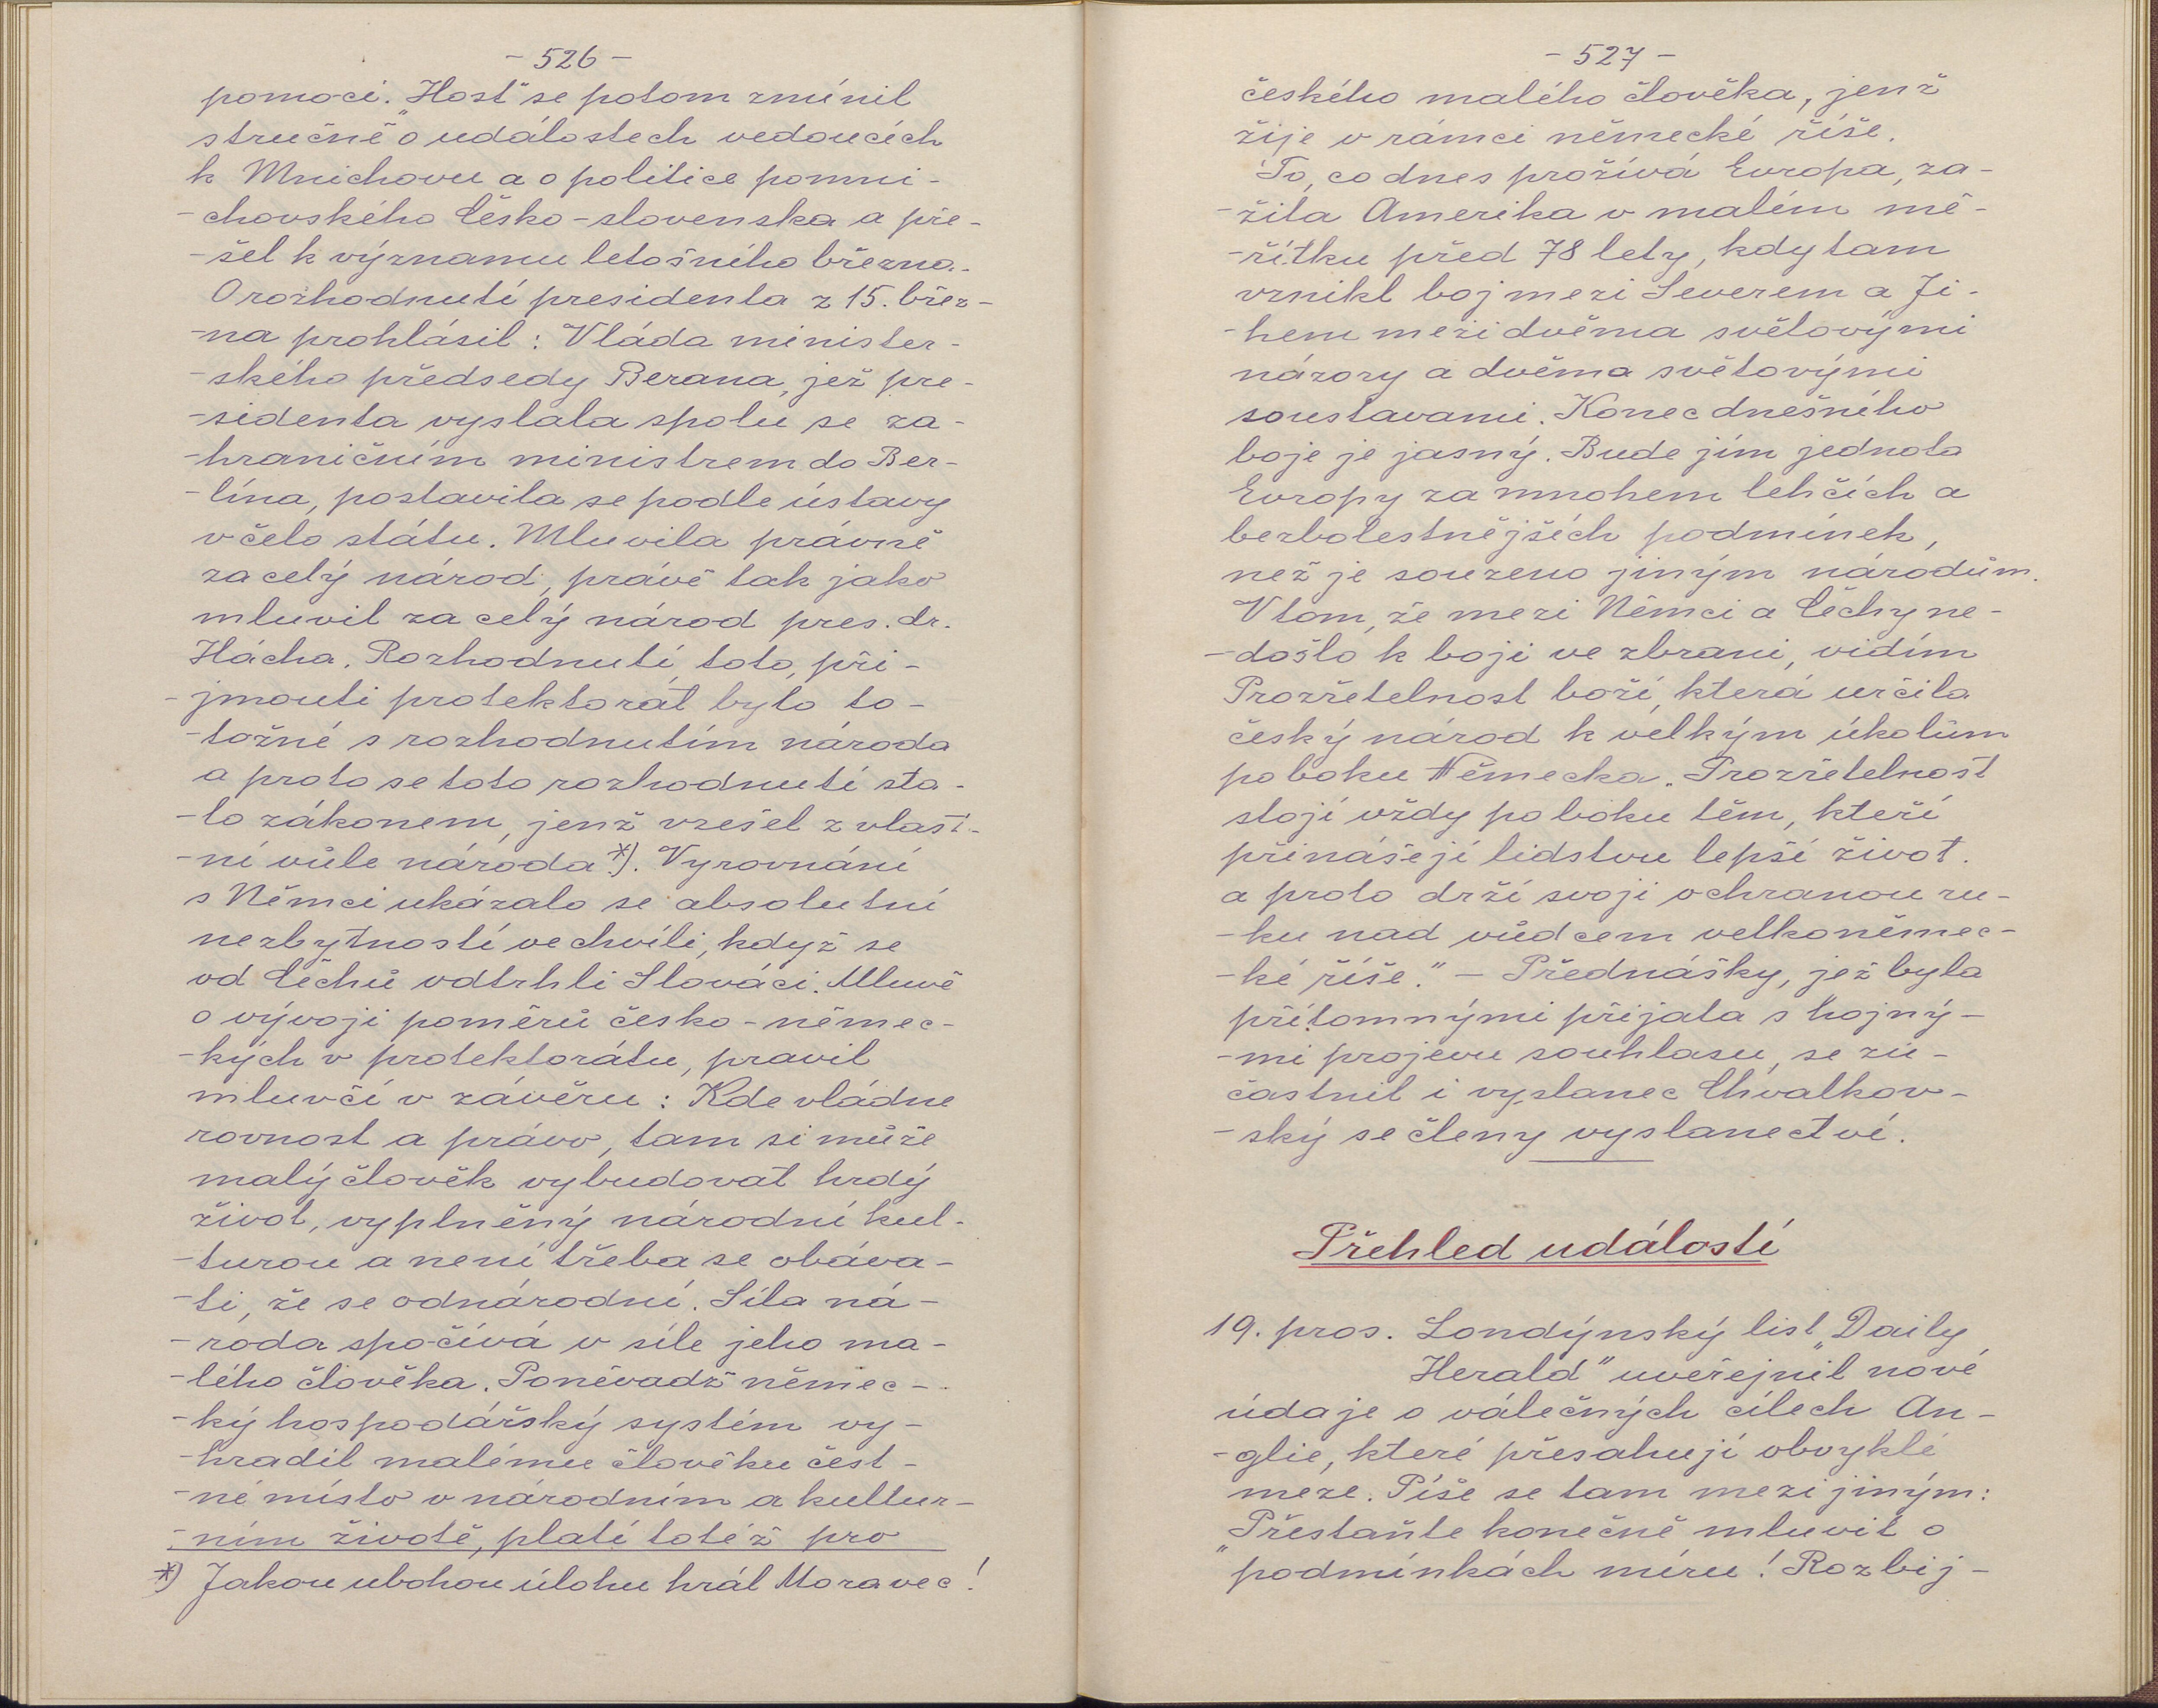 - 526 -
pomoci. "Host" se potom zmínil
stručně o událostech vedoucích
k Mnichovu a o politice pomni-
-chovského Česko-slovenska a pře-
-šel k významu letošního března.
O rozhodnutí presidenta z 15. břez-
-na prohlásil: Vláda minister-
-ského předsedy Berana, jež pre-
-sidenta vyslala spolu se za-
-hraničním ministrem do Ber-
-lína, postavila se podle ústavy
v čelo státu. Mluvila právně
za celý národ, právě tak jako
mluvil za celý národ pres. dr.
Hácha. Rozhodnutí toto, při-
-jmouti protektorát bylo to-
-tožné s rozhodnutím národa
a proto se toto rozhodnutí sta-
-lo zákonem, jenž vzešel z vlast-
-ní vůle národa *). Vyrovnání
s Němci ukázalo se absolutní
nezbytností ve chvíli, když se
od Čechů odtrhli Slováci. Mluvě
o vývoji poměrů česko-němec-
-kých v protektorátu, pravil
mluvčí v závěru: Kde vládne
rovnost a právo, tam si může
malý člověk vybudovat hrdý
život, vyplněný národní kul-
-turou a není třeba se obáva-
-ti, že se odnárodní. Síla ná-
-roda spočívá v síle jeho ma-
-lého člověka. Poněvadž němec-
-ký hospodářský systém vy-
-hradil malému člověku čest-
-né místo v národním a kultur-
-ním životě, platí totéž pro
*) Jakou ubohou úlohu hrál Moravec!
- 527 -
českého malého člověka, jenž
žije v rámci německé říše.
To, co dnes prožívá Evropa, za-
-žila Amerika v malém mě-
-řítku před 78 lety, kdy tam
vznikl boj mezi Severem a Ji-
-hem mezi dvěma světovými
názory a dvěma světovými
soustavami. Konec dnešního
boje je jasný. Bude jím jednota
Evropy za mnohem lehčích a
bezbolestnějších podmínek,
než je souzeno jiným národům.
V tom, že mezi Němci a Čechy ne-
-došlo k boji ve zbrani, vidím
Prozřetelnost boží, která určila
český národ k velkým úkolům
po boku Německa. Prozřetelnost
stojí vždy po boku těm, kteří
přinášejí lidstvu lepší život.
a proto drží svoji ochranou ru-
-ku nad vůdcem velkoněmec-
-ké říše." - Přednášky, jež byla
přítomnými přijata s hojný-
-mi projevu souhlasu, se zú-
častnil i vyslanec Chvalkov-
-ský se členy vyslanectví.
Přehled událostí
19. pros. Londýnský list "Daily
Herald" uveřejnil nové
údaje o válečných cílech An-
-glie, které přesahují obvyklé
meze. Píše se tam mezi jiným:
"Přestaňte konečně mluvit o
podmínkách míru! Rozbij-